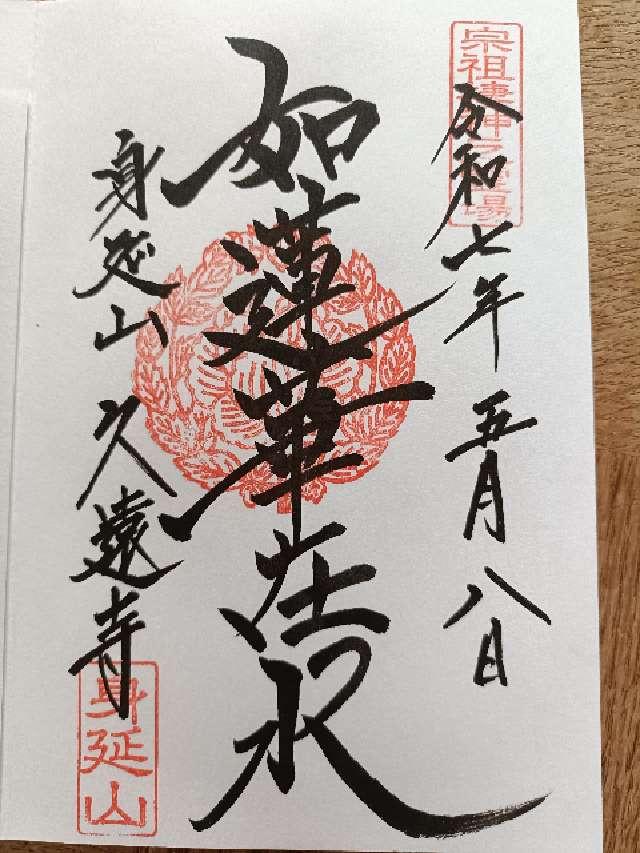 宗祖棲神之霊場
令和七年五月八日
如蓮華在水
身延山久遠寺
身延山